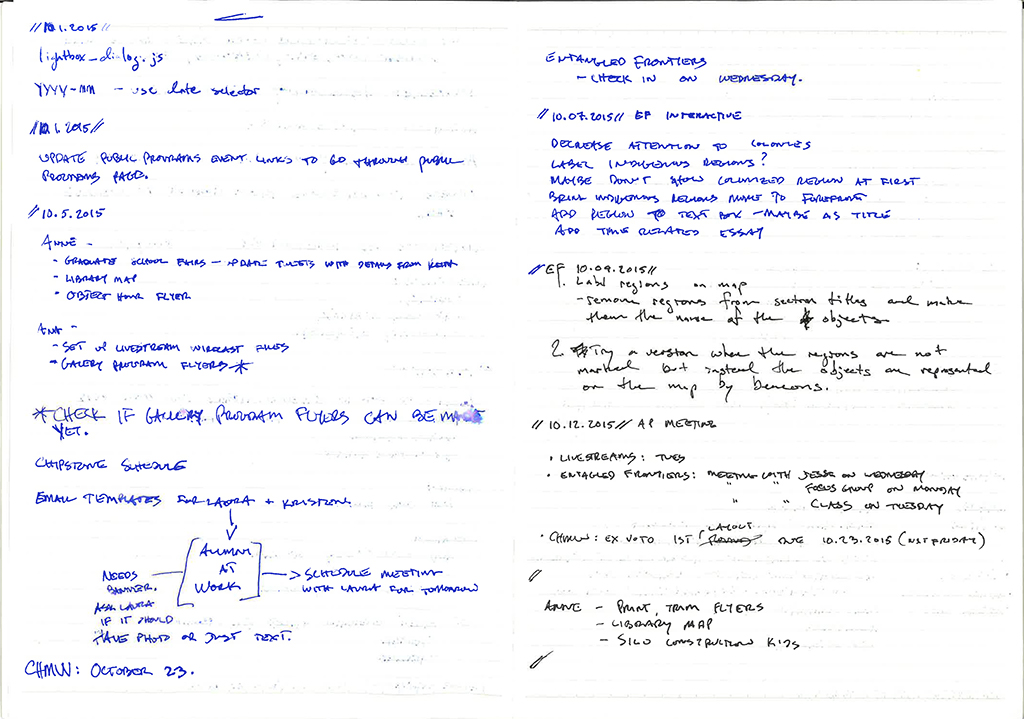 //10.1.2015//
lightbox_dialog.js
YYYY-MM - use date selector
//10.1.2015//
UPDATE PUBLIC PROGRAMS EVENT LINKS TO GO THROUGH PUBLIC
PROGRAMS PAGE.
// 10.5.2015
ANNE -
- GRADUATE SCHOOL FAIRS - UPDATE TWEETS WITH DETAILS FROM KEITH
- LIBRARY MAP
- OBJECT HOUR FLYER
ANA -
- SET UP LIVESTREAM WIRECAST FILES
- GALLERY PROGRAM FLYERS *
* CHECK IF GALLERY PROGRAM FLYERS CAN BE MADE
YET.
CHIPSTONE SCHEDULE
EMAIL TEMPLATES FOR LAURA +
ALUMNI
AT
WORK
NEEDS
BANNER.
ASK LAURA
IF IT SHOULD
HAVE PHOTO OR JUST TEXT.
> SCHEDULE MEETING
WITH LAURA FOR TOMORROW
CHMW: OCTOBER 23.
ENTANGLED FRONTIERS
- CHECK IN ON WEDNESDAY.
// 10.07.2015 // EF INTERACTIVE
DECREASE ATTENTION TO COLONIES
LABEL INDIGENOUS REGIONS?
MAYBE DON'T SHOW COLONIZED REGION AT FIRST
BRING INDIGENOUS REGIONS MORE TO FOREFRONT
ADD REGION TO TEXT BOX - MAYBE AS TITLE
ADD TIME RELATED ESSAY
// EF 10.09.2015 //
1. Label regions on map
- remove regions from section titles and make
them the name of the objects
2. Try a version where the regions are not
marked but instead the objects are represented
on the map by beacons.
// 10.12.2015 // AP MEETING
• LIVESTREAMS: TUES
• ENTAGLED FRONTIERS: MEETING WITH JESSE ON WEDNESDAY
" " FOCUS GROUP ON MONDAY
" " CLASS ON TUESDAY
• CHMW: EX VOTO 1ST LAYOUT DUE 10.23.2015 (NXT FRIDAY)
//
ANNE - PRINT, TRIM FLYERS
- LIBRARY MAP
- SILO CONSTRUCTION KIDS
//